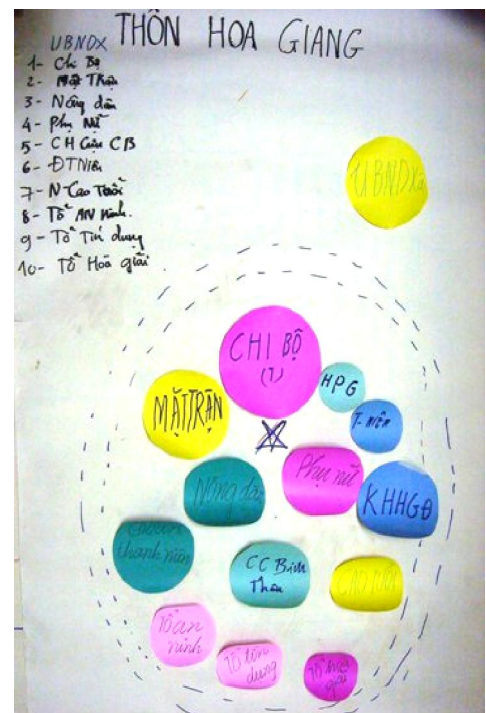 THÔN HOA GIANG
UBNDX
1- Chi Bộ
2- Mặt Trận
3- Nông dân
4- Phụ Nữ
5- CH Cựu CB
6- ĐTNiên
7- N Cao Tuổi
8- Tổ AN Ninh.
9- Tổ Tín dụng
10- Tổ Hoà giải
UBNDXã
CHI BỘ
(T)
HPG
MẶTTRẬN
T-NIÊN
Nông dâ
Phụ nữ
KHHGĐ
thanh niên
CC Binh
Thôn
CAO TUỔI
Tổ an
ninh
Tổ tín
dụng
Tổ hoà
giải